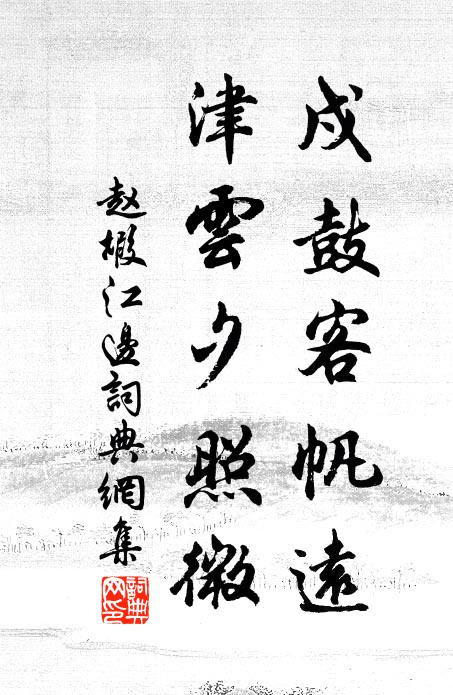 戍鼓客帆遠
津雲夕照微
赵嘏江邊詞典網集
詞典网印